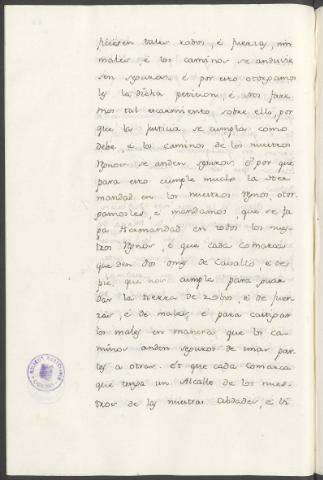 ficieren tales robos, é fuerzas, nin
males, é los caminos se anduvie
sen seguros: é por esto otorgamos
les la dicha peticion: é Nos fare
mos tal escarmiento sobre ello, por
que la justicia se cumpla como
debe, é los caminos de los nuestros
Regnos se anden seguros. E por que
para esto cumple mucho la Her
mandad en los nuestros Regnos, otor
gamosles, é mandamos, que se fa
ga Hermandad en todos los nues
tros Regnos, é que cada comarca
que den dos omes de Cavallo, é de
pie, que nos cumple para guar
dar la tierra de robos, é de fuer
zas, é de males, é para castigar
los males en manera que los ca
minos anden seguros de unas par
tes a otras. Et que cada comarca
que tenga un Alcalle de los nues
tros de las nuestras Cibdades, é Vi